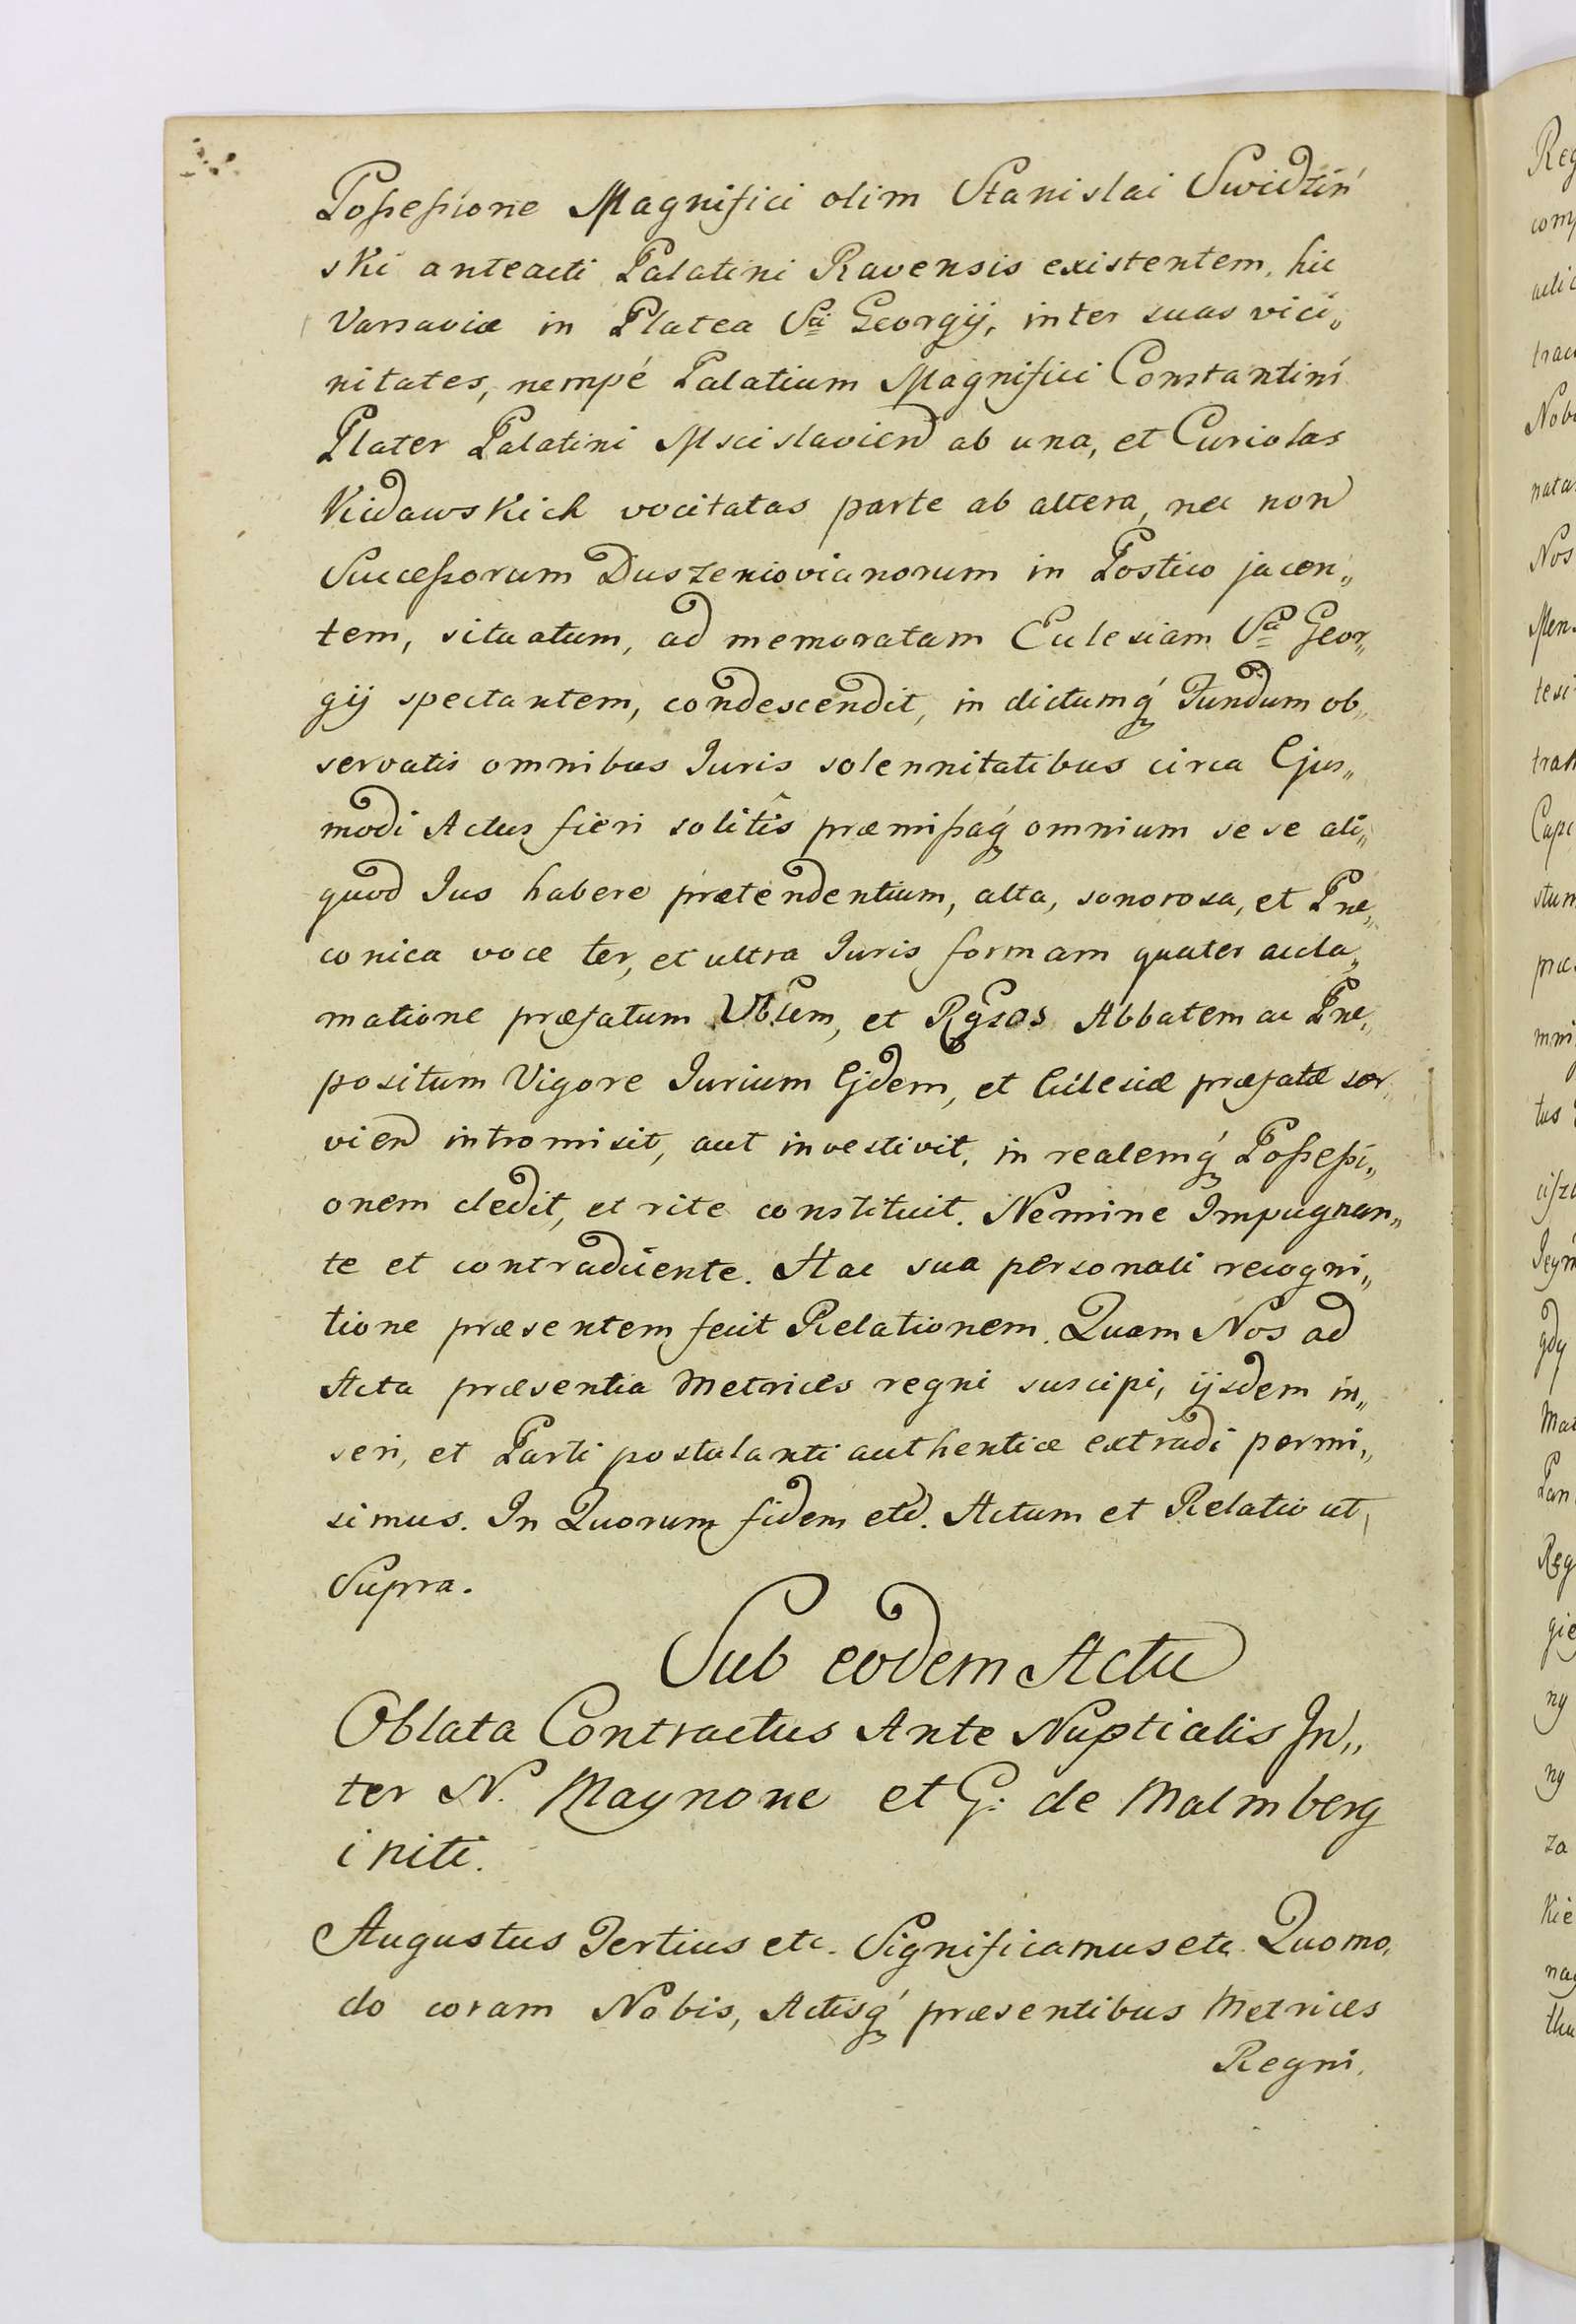 Possessione Magnifici olim Stanislai Swidzin
ski anteacti Palatini Ravensis existentem, hic
Varsaviæ in Platea Sti Georgij, inter suas vici„
nitates, nempé Palatium Magnifici Constantini
Plater Palatini Mscislavien ab una, et Curiolas
Kidawskich vocitatas parte ab altera, nec non
Successorum Duszeniovianorum in Postico jacen„
tem, situatum, ad memoratam Eclesiam Sti Geor„
gij spectantem, condescendit, in dictumq́ Fundum ob„
servatis omnibus Juris solennitatibus circa Ejus„
modi Actus fieri solitîs præmissaq́ omnium se se ali„
quod Jus habere prætendentium, alta, sonorosa, et Præ„
conica voce ter, et ultra Juris formam quater accla„
matione præfatum Vblem, et Rgsos Abbatem ac Præ„
positum Vigore Jurium Ejdem, et Eclesiæ præfatæ ser„
vien intromisit, aut investivit, in realemq́ Possessi„
onem dedit, et rite constituit. Nemine Impugnan„
te et contradicente. Hac sua personali recogni„
tione præsentem fecit Relationem. Quam Nos ad
Acta præsentia Metrices regni suscipi, ijsdem in„
seri, et Parti postulanti authentice extradi permi„
simus. In Quorum fidem etc. Actum et Relatio ut
Supra.
Sub eodem Actu
Oblata Contractus Ante Nuptialis In„
ter N. Maynone et G: de Malmberg
initi.
Augustus Tertius etc. Significamus etc. Quomo„
do coram Nobis, Actisq́ præsentibus Metrices
Regni.